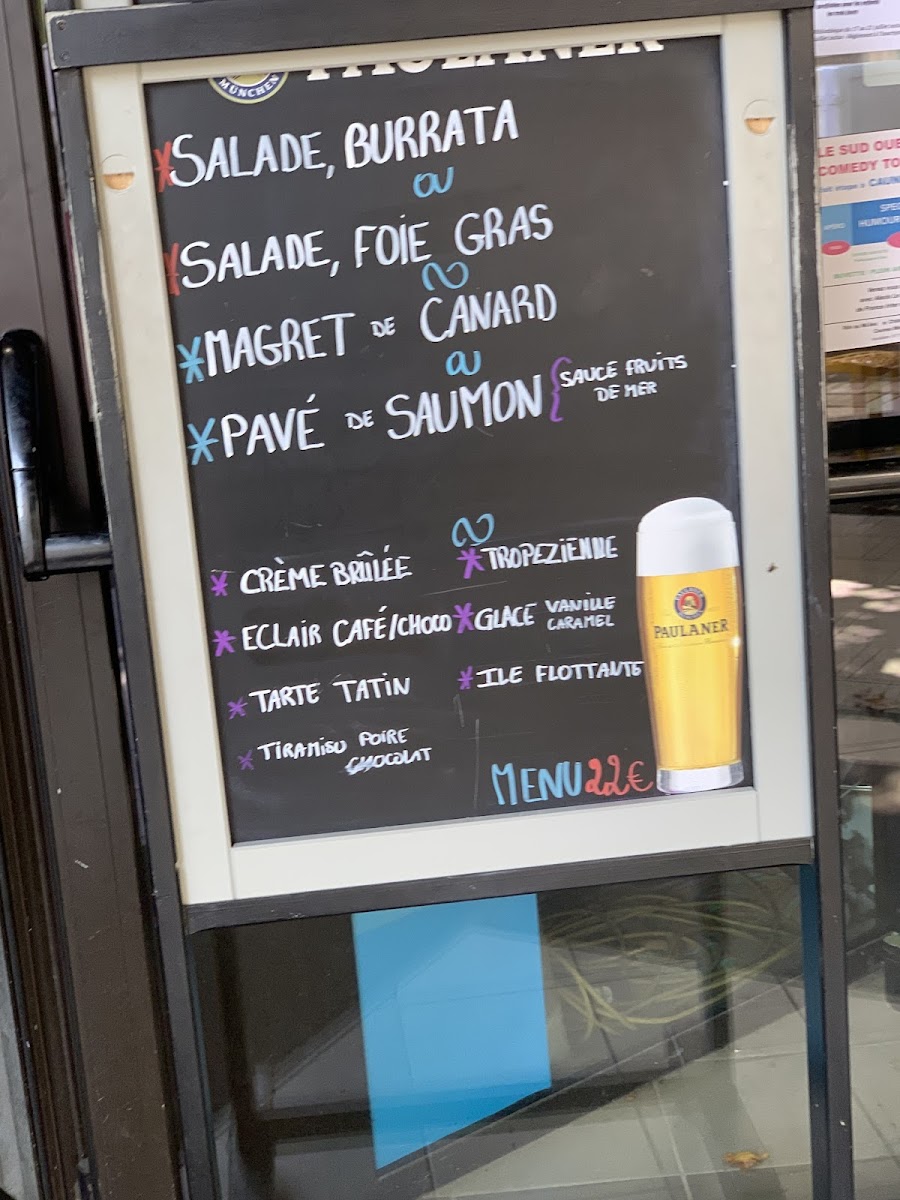 PAULANER
MÜNCHEN
*SALADE, BURRATA
OU
*SALADE, FOIE GRAS
*MAGRET DE CANARD
OU
*PAVÉ DE SAUMON { SAUCE FRUITS
DE MER
* CRÈME BRÛLÉE
* TROPEZIENNE
* ECLAIR CAFÉ/CHOCO
* GLACE VANILLE
CARAMEL
* TARTE TATIN
* ILE FLOTTANTE
* TIRAMISU POIRE
CHOCOLAT
PAULANER
MENU 22€
LE SUD OUE
COMEDY TO
SPE
HUMOUR